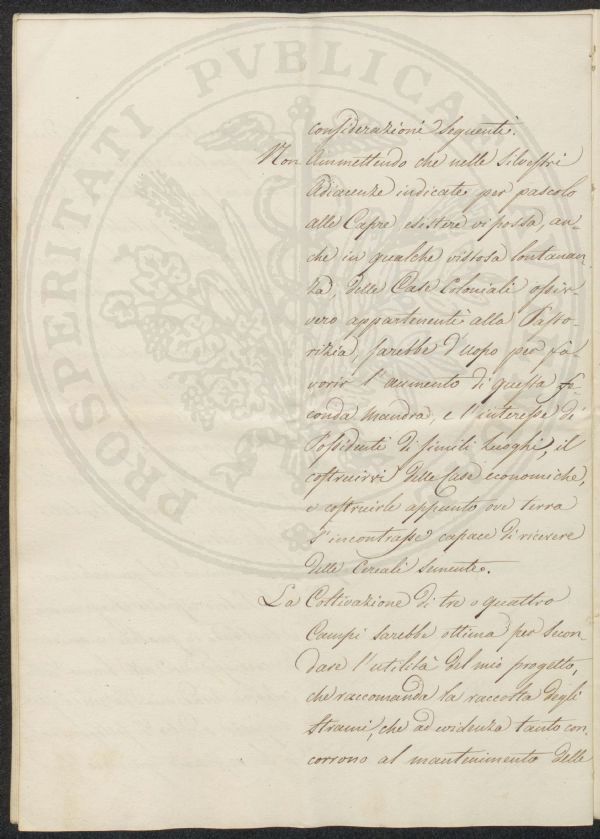 PROSPERITATI PVBLICA
considerazioni seguenti.
Non Ammettendo che nelle Silvestri
Adiacenze indicate per pascolo
alle Capre, esistere vi possa, an-
che in qualche vistosa lontanan-
za, delle Case Coloniali ossiv-
vero appartenenti alla Pasto-
rizia, sarebbe d'uopo per fa-
vorir l'aumento di questa fe-
conda mandra, e l'interesse di
Possidenti di simili luoghi, il
costruirvi delle Case economiche,
e costruirle appunto ove terra
s'incontrasse capace di ricevere
delle Cereali semente.
La Coltivazione di tre o quattro
Campi sarebbe ottima per secon-
dare l'utilità del mio progetto,
che raccomanda la raccolta degli
Strami, che ad evidenza tanto con-
corrono al mantenimento delle